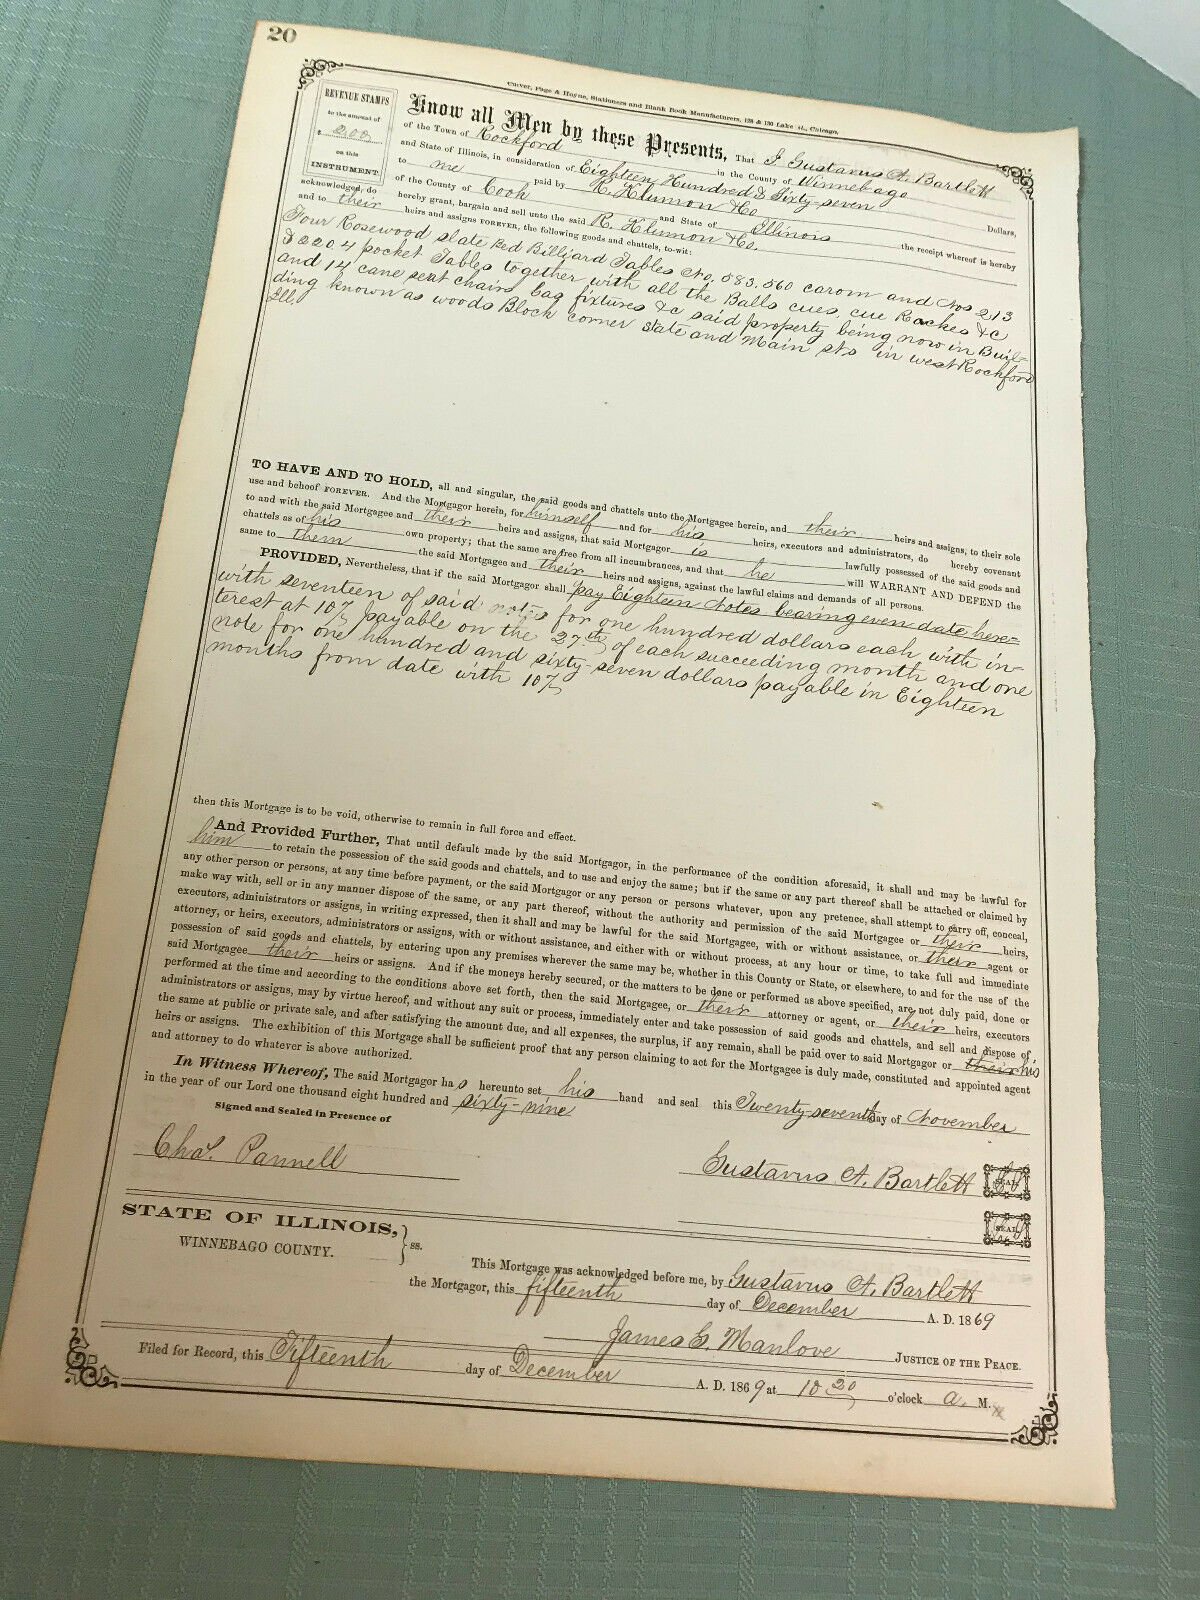 20
Culver, Page & Hoyne, Stationers and Blank Book Manufacturers, 128 & 130 Lake St., Chicago.
REVENUE STAMPS
to the amount of
$ 2.00
on this
INSTRUMENT.
Know all Men by these Presents, That I Gustavus A. Bartlett
of the Town of Rockford in the County of Winnebago
and State of Illinois, in consideration of Eighteen Hundred & Sixty-seven Dollars,
to me paid by
of the County of Cook and State of Illinois the receipt whereof is hereby
acknowledged, do hereby grant, bargain and sell unto the said
and to their heirs and assigns FOREVER, the following goods and chattels, to-wit:
Four Rosewood slate Bed Billiard Tables No. 583, 560 carom and Nos 213
& 220 4 pocket Tables together with all the Balls cues, cue Rackes &c
and 14 cane seat chairs, fixtures &c said property being now in Buil-
ding known as woods Block corner State and Main sts in west Rockford
Ill
TO HAVE AND TO HOLD, all and singular, the said goods and chattels unto the Mortgagee herein, and their heirs and assigns, to their sole
use and behoof FOREVER. And the Mortgagor herein, for himself and for his heirs, executors and administrators, do hereby covenant
to and with the said Mortgagee and their heirs and assigns, that said Mortgagor is lawfully possessed of the said goods and
chattels as of his own property; that the same are free from all incumbrances, and that he will WARRANT AND DEFEND the
same to them the said Mortgagee and their heirs and assigns, against the lawful claims and demands of all persons.
PROVIDED, Nevertheless, that if the said Mortgagor shall pay Eighteen Notes bearing even date here=
with seventeen of said notes for one hundred dollars each with in-
terest at 10% payable on the 27th of each succeeding month and one
note for one hundred and sixty-seven dollars payable in Eighteen
months from date with 10%
then this Mortgage is to be void, otherwise to remain in full force and effect.
And Provided Further, That until default made by the said Mortgagor, in the performance of the condition aforesaid, it shall and may be lawful for
him to retain the possession of the said goods and chattels, and to use and enjoy the same; but if the same or any part thereof shall be attached or claimed by
any other person or persons, at any time before payment, or the said Mortgagor or any person or persons whatever, upon any pretence, shall attempt to carry off, conceal,
make way with, sell or in any manner dispose of the same, or any part thereof, without the authority and permission of the said Mortgagee or their heirs,
executors, administrators or assigns, in writing expressed, then it shall and may be lawful for the said Mortgagee, with or without assistance, or their agent or
attorney, or heirs, executors, administrators or assigns, with or without assistance, and either with or without process, at any hour or time, to take full and immediate
possession of said goods and chattels, by entering upon any premises wherever the same may be, whether in this County or State, or elsewhere, to and for the use of the
said Mortgagee their heirs or assigns. And if the moneys hereby secured, or the matters to be done or performed as above specified, are not duly paid, done or
performed at the time and according to the conditions above set forth, then the said Mortgagee, or their attorney or agent, or their heirs, executors
administrators or assigns, may by virtue hereof, and without any suit or process, immediately enter and take possession of said goods and chattels, and sell and dispose of
the same at public or private sale, and after satisfying the amount due, and all expenses, the surplus, if any remain, shall be paid over to said Mortgagor or their his
heirs or assigns. The exhibition of this Mortgage shall be sufficient proof that any person claiming to act for the Mortgagee is duly made, constituted and appointed agent
and attorney to do whatever is above authorized.
In Witness Whereof, The said Mortgagor has hereunto set his hand and seal this Twenty-seventh day of November
in the year of our Lord one thousand eight hundred and sixty-nine
Signed and Sealed in Presence of
Chas. Pannell
Gustavus A. Bartlett SEAL
SEAL
STATE OF ILLINOIS, } ss.
WINNEBAGO COUNTY.
This Mortgage was acknowledged before me, by Gustavus A. Bartlett
the Mortgagor, this fifteenth day of December A. D. 1869
James G. Manlove JUSTICE OF THE PEACE.
Filed for Record, this Fifteenth day of December A. D. 1869 at 10 20 o'clock A. M.